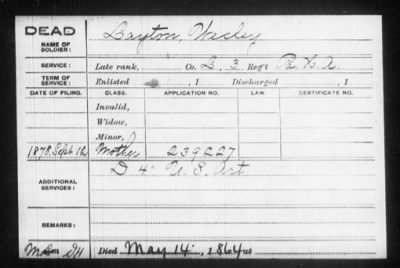 DEAD
NAME OF SOLDIER: Layton, Wesley
SERVICE: Late rank, Co. L, 3 Reg't R. H. A.
TERM OF SERVICE: Enlisted , 1 Discharged , 1
DATE OF FILING. CLASS. APPLICATION NO. LAW. CERTIFICATE NO.
Invalid,
Widow,
Minor,
1878, Sept. 12 Mother 239227
ADDITIONAL SERVICES: D 4" U. S. Art
REMARKS:
Died May 14, 1864 at